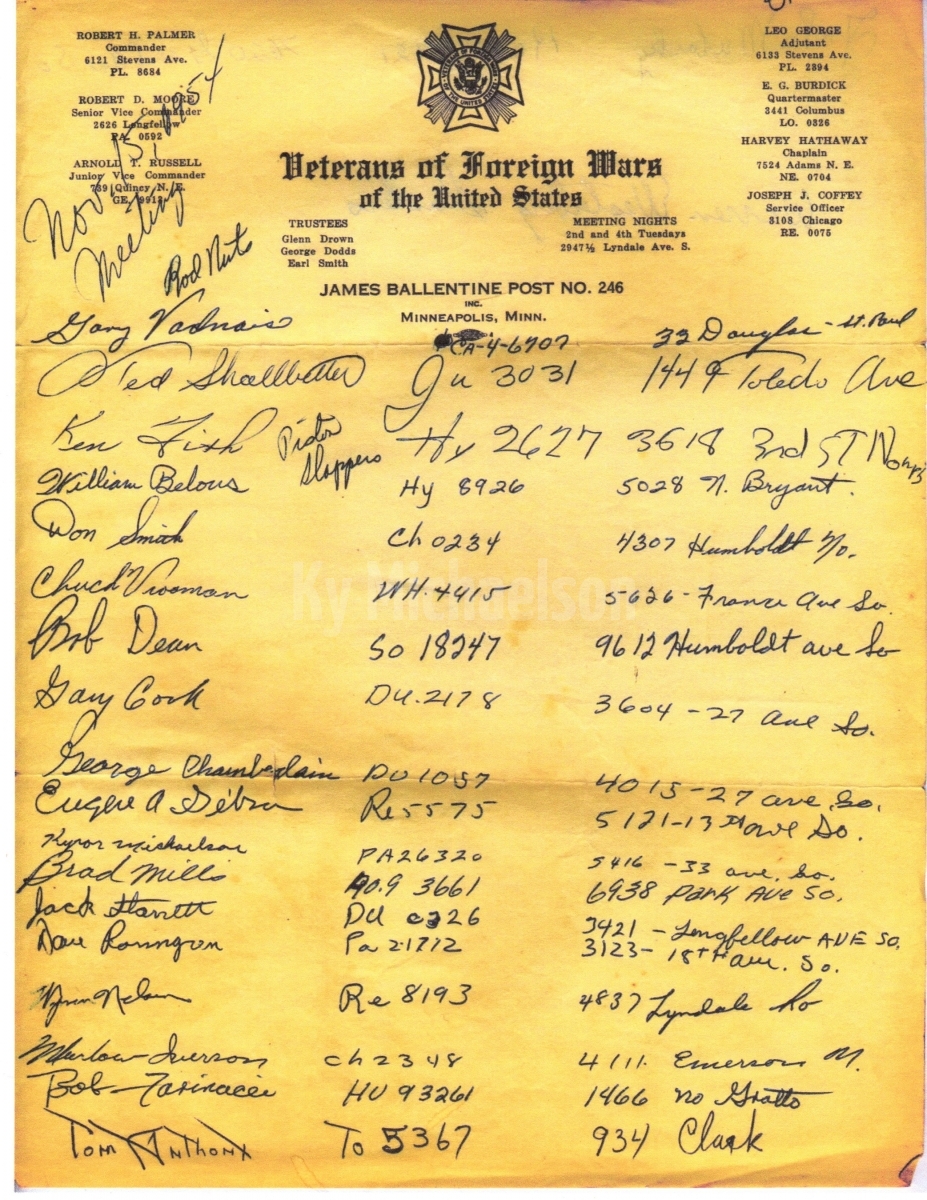 ROBERT H. PALMER
Commander
6121 Stevens Ave.
PL. 8684
ROBERT D. MOORE
Senior Vice Commander
2626 Longfellow
PA. 0592
ARNOLD T. RUSSELL
Junior Vice Commander
739 Quincy N. E.
GE. 9912
Nov. 15, 1954
Meeting
Rod Nuts
VETERANS OF FOREIGN WARS
OF THE UNITED STATES
Veterans of Foreign Wars
of the United States
TRUSTEES
Glenn Drown
George Dodds
Earl Smith
MEETING NIGHTS
2nd and 4th Tuesdays
2947½ Lyndale Ave. S.
LEO GEORGE
Adjutant
6133 Stevens Ave.
PL. 2394
E. G. BURDICK
Quartermaster
3441 Columbus
LO. 0326
HARVEY HATHAWAY
Chaplain
7524 Adams N. E.
NE. 0704
JOSEPH J. COFFEY
Service Officer
3108 Chicago
RE. 0075
JAMES BALLENTINE POST NO. 246
INC.
MINNEAPOLIS, MINN.
Gary Vadnais CA-4-6707 33 Douglas - St. Paul
Ted Shallbetter Ju 3031 1449 Toledo Ave
Ken Fish Piston Slappers Hy 2627 3618 3rd ST No
William Belous Hy 8926 5028 N. Bryant.
Don Smith Ch 0234 4307 Humboldt No.
Chuck Vrooman WH. 4415 5626 - France Ave So.
Ky Michaelson
Bob Dean So 18247 9612 Humboldt ave So
Gary Cook DU. 2178 3604 - 27 ave So.
George Chamberlain DU 1057 4015 - 27 ave. So.
Eugene A Re 5575 5121 - 13th ave So.
Kyror Michaelson PA26320 5416 - 33 ave. So.
Brad Mills 3661 6938 PARK AVE So.
Jack DU 0326 3421 - Longfellow AVE SO.
Dave Pa 2-1772 3123 - 18TH ave. So.
Wynn Nelson Re 8193 4837 Lyndale So
Marlow Iverson Ch 2348 4111. Emerson N.
Bob Farinacci HU 93261 1466 no Grotto
Tom Anthony To 5367 934 Clark